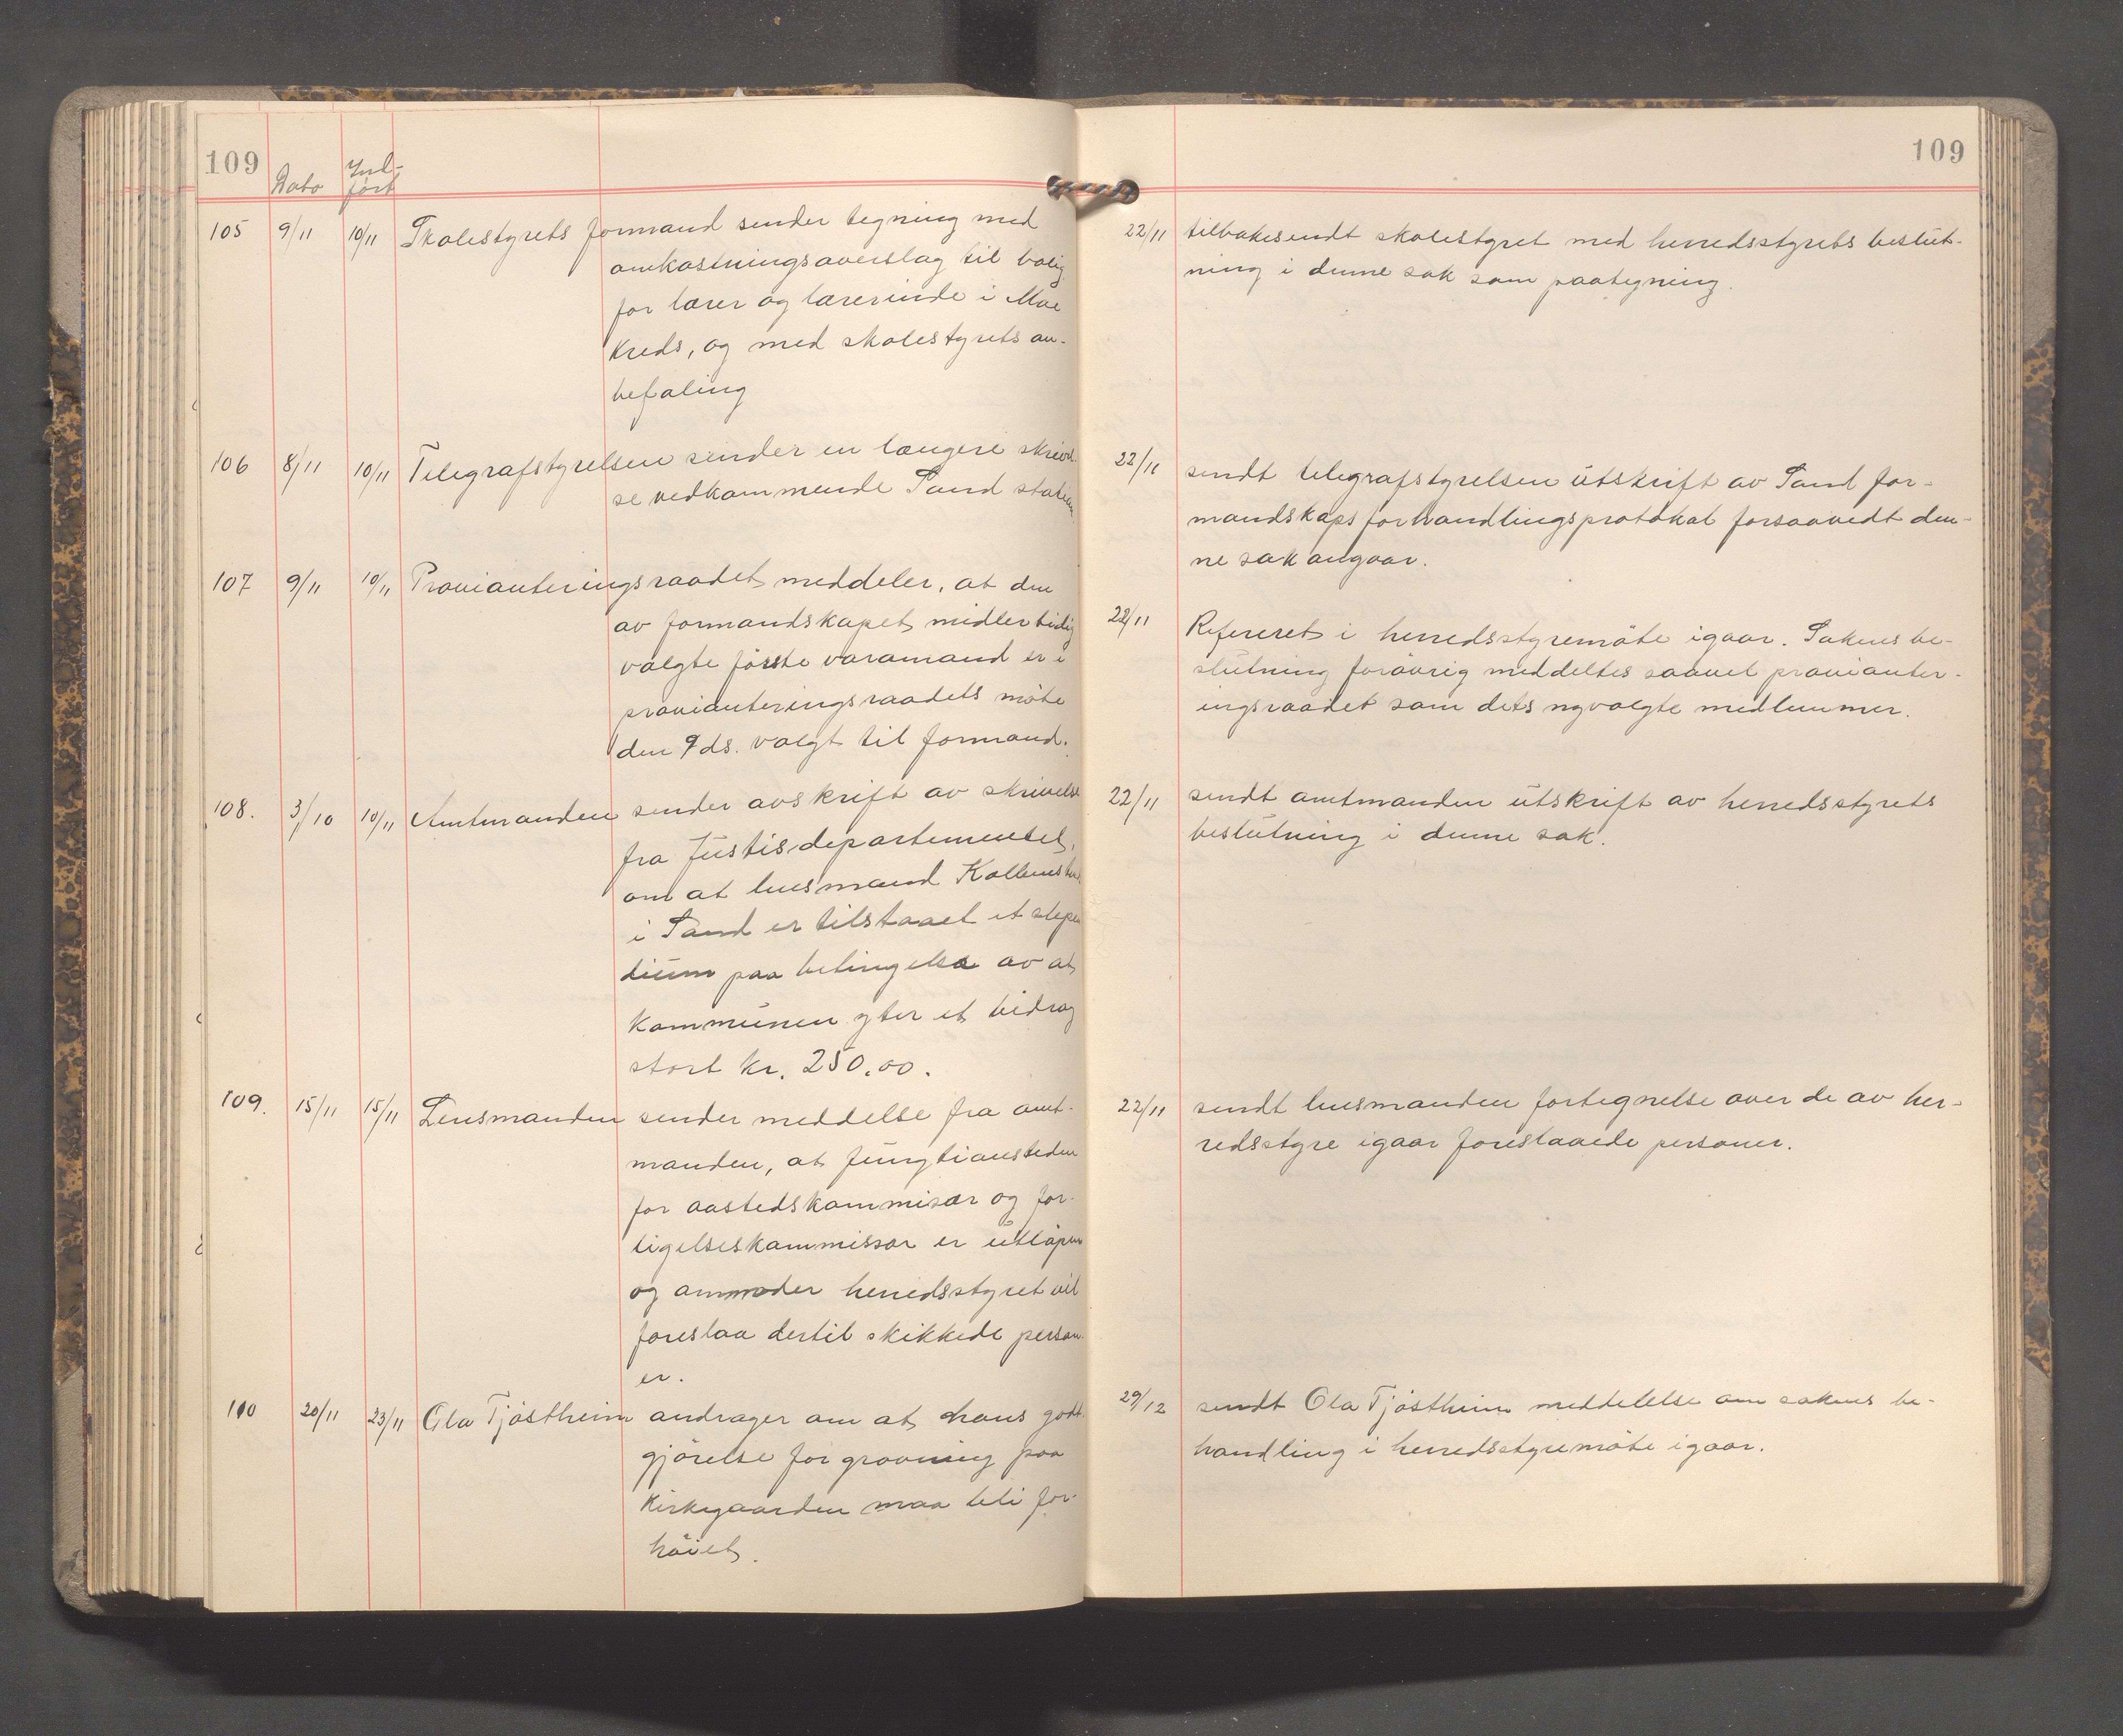 109
Dato
Ind-
ført
105 9/11 10/11 Skolestyrets formand sender tegning med
omkostningsoverslag til bolig
for lærer og lærerinde i Moe
Kreds, og med skolestyrets an-
befaling
106 8/11 10/11 Telegrafstyrelsen sender en længere skrivel-
se vedkommende Sand station
107 9/11 10/11 Provianteringsraadet meddeler, at den
av formandskapet midlertidig
valgte første varamand er i
provianteringsraadets møte
den 9 ds. valgt til formand.
108. 3/10 10/11 Amtmanden sender avskrift av skrivelse
fra Justisdepartementet,
om at lensmand
i Sand er tilstaaet et stipen
dium paa betingelse av at
kommunen yter et bidrag
stort kr. 250.00.
109. 15/11 15/11 Lensmanden sender meddelse fra amt-
manden, at fungtionstiden
for aastedskommisær og for-
ligelseskommissær er utløpen
og anmoder herredsstyret vil
foreslaa dertil skikkede person-
er.
110 20/11 23/11 Ola Tjøstheim andrager om at hans godt-
gjørelse for gravning paa
Kirkegaarden maa bli for-
høiet.
109
22/11 tilbakesendt skolestyret med herredsstyrets beslut-
ning i denne sak som paategning.
22/11 sendt telegrafstyrelsen utskrift av Sand for-
mandskaps forhandlingsprotokol forsaavidt den-
ne sak angaar.
22/11 Referert i herredsstyremøte igaar. Sakens be-
slutning forøvrig meddeltes saavel provianter-
ingsraadet som dets nyvalgte medlemmer.
22/11 sendt amtmanden utskrift av herredsstyrets
beslutning i denne sak.
22/11 sendt lensmanden fortegnelse over de av her-
redsstyre igaar foreslaaede personer.
29/12 sendt Ola Tjøstheim meddelelse om sakens be-
handling i herredsstyremøte igaar.